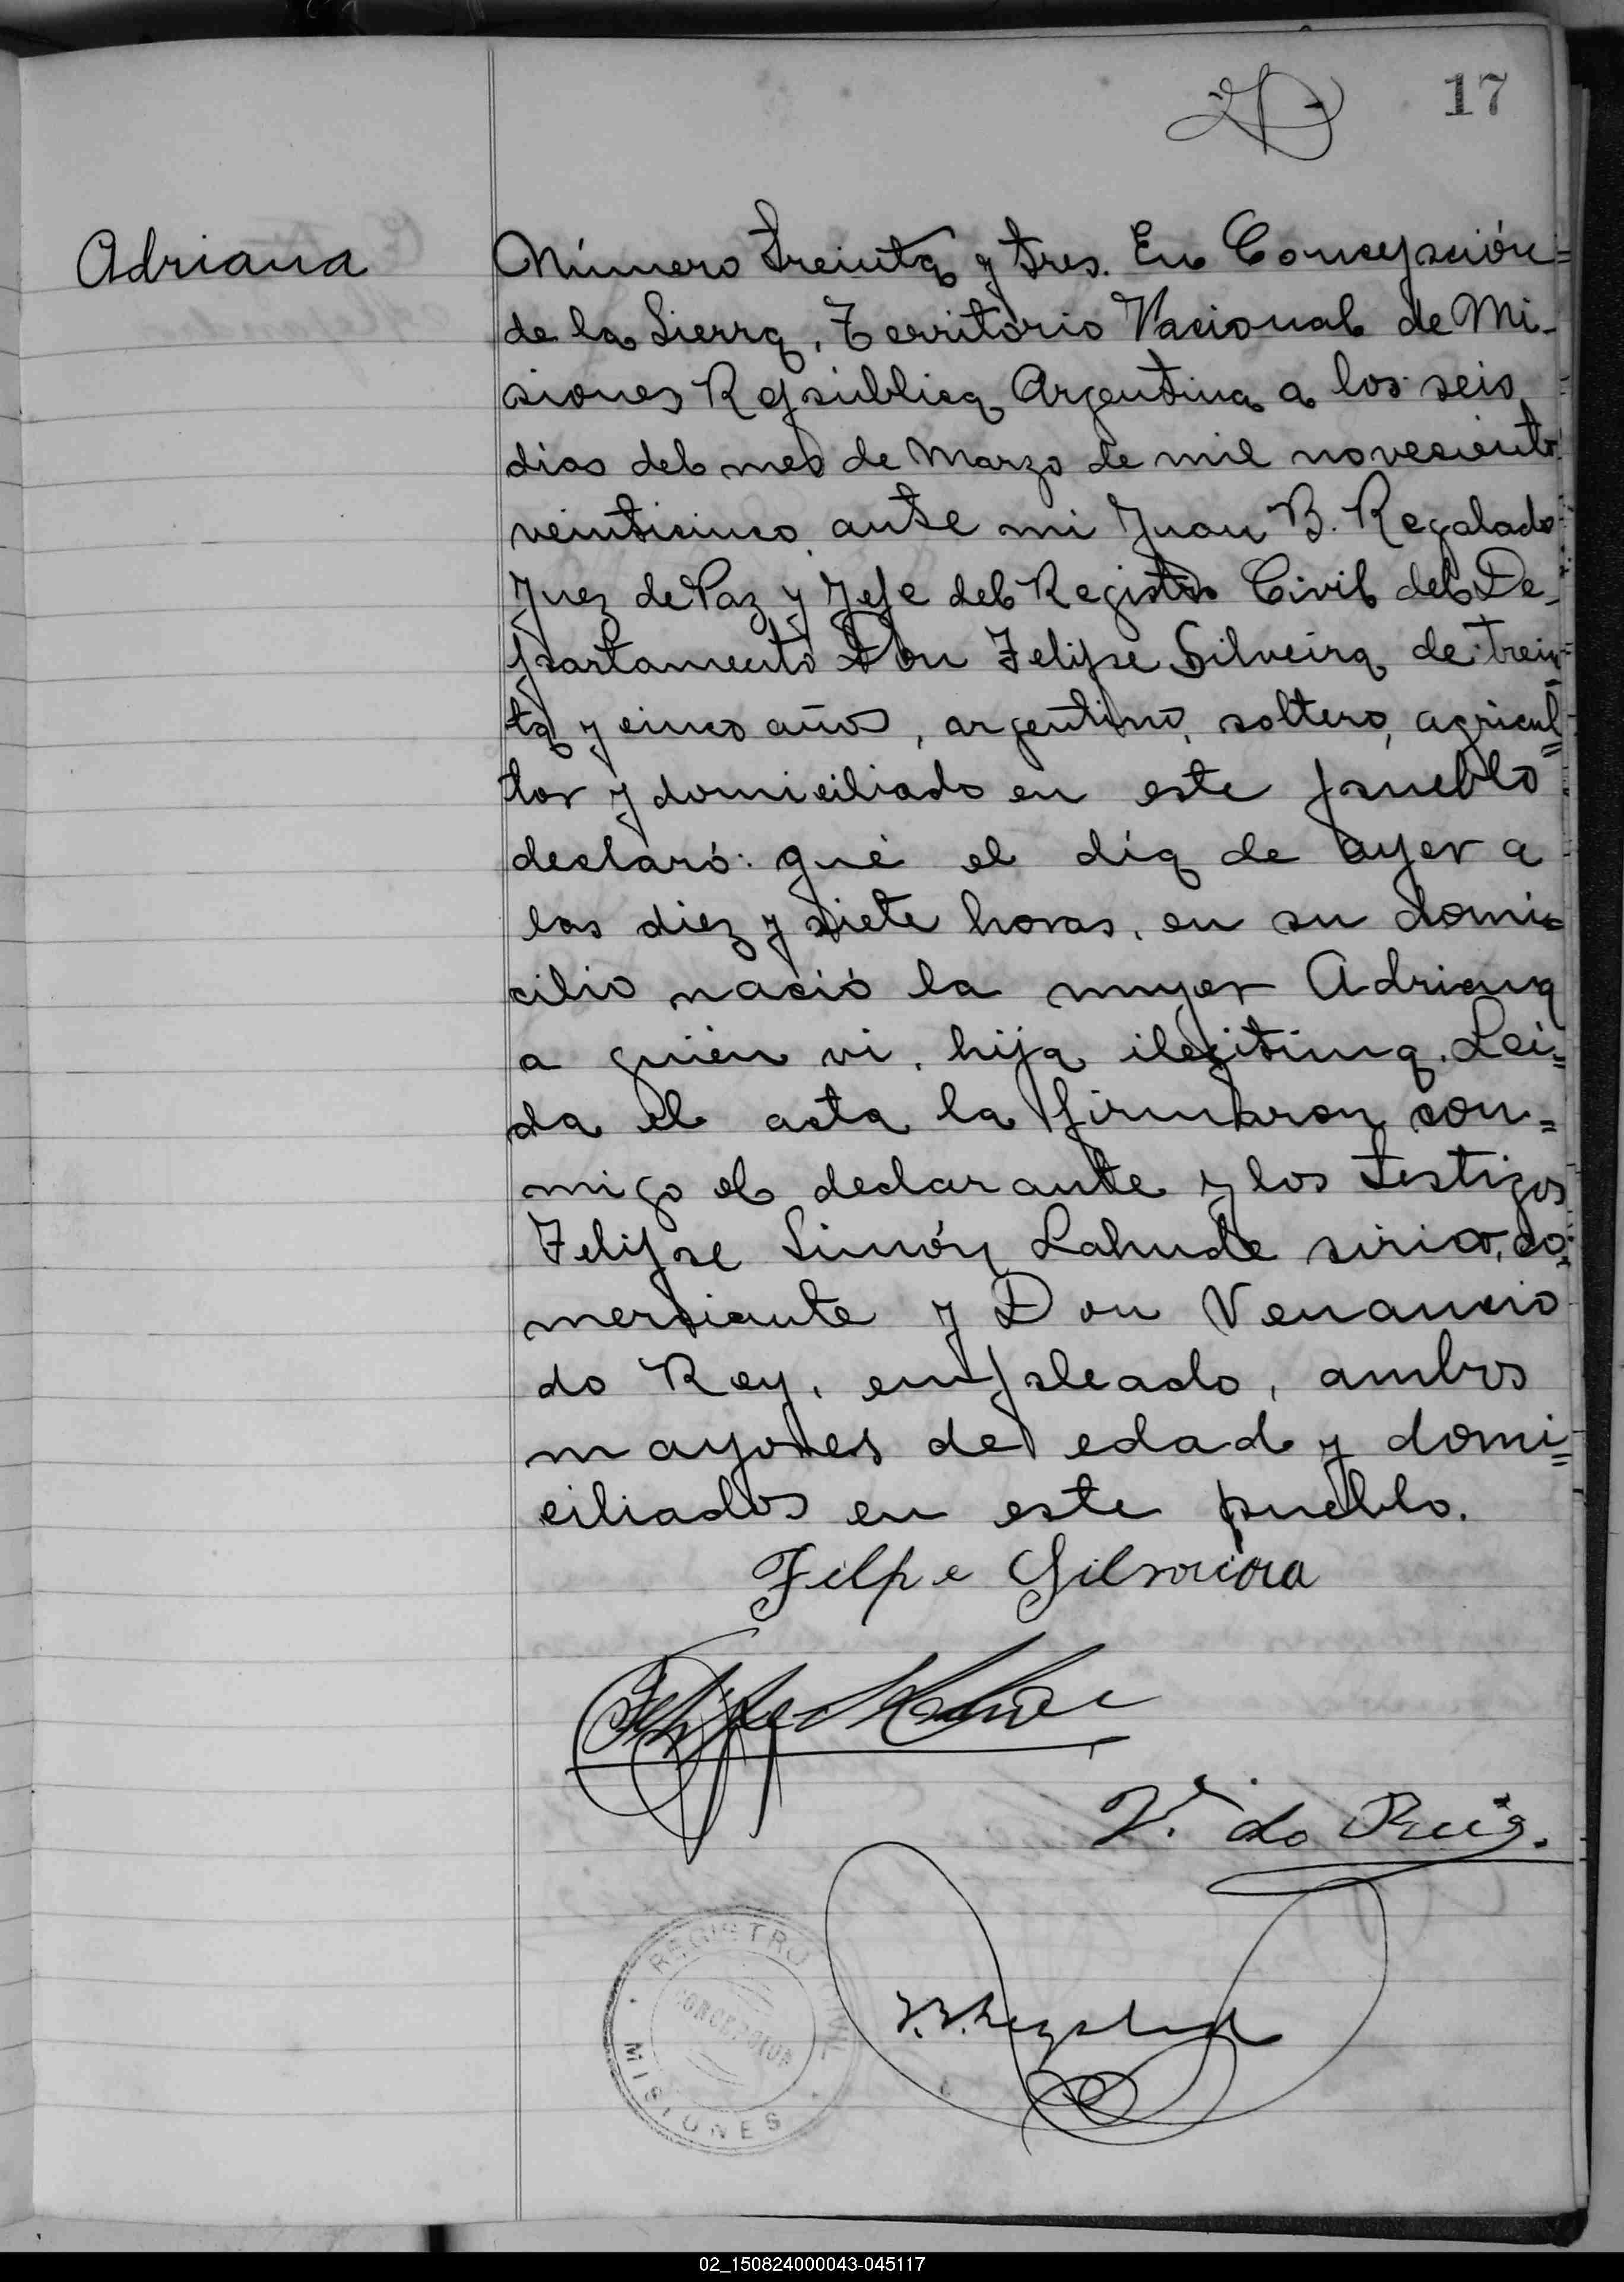 17
Adriana
Número treinta y tres. En Concepción=
de la Sierra, Territorio Nacional de Mi-
siones República Argentina a los seis
dias del mes de Marzo de mil novecientos
veinticinco, ante mi Juan B. Regalado
Juez de Paz y Jefe del Registro Civil del De-
partamento Don Felipe Silveira, de trein=
ta y cinco años, argentino, soltero, agricul=
tor y domiciliado en este pueblo
declaró: que el día de ayer a
las diez y siete horas, en su domi=
cilio nació la mujer Adriana
a quien vi, hija ilegítima. Lei=
da el acta la firmaron con=
migo el declarante y los testigos
Felipe Simón Lahude sirio, co=
merciante y Don Venancio
do Rey, empleado, ambos
mayores de edad y domi=
ciliados en este pueblo.
Felpe Silveira
Felippe Lahude
V. do Reis.
J. B. Regalado
REGISTRO CIVIL
CONCEPCION
MISIONES
02_150824000043-045117